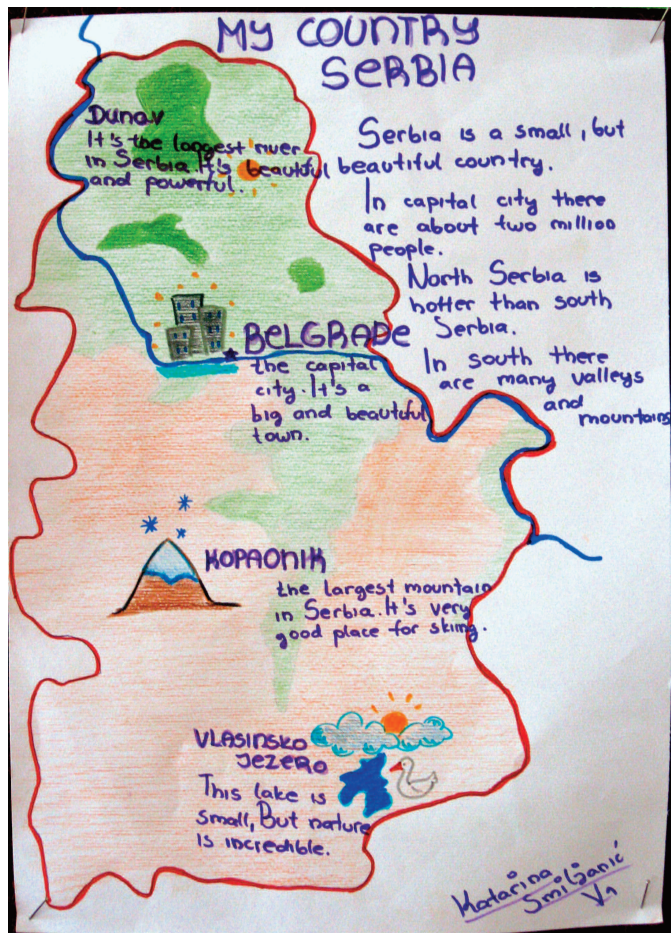 MY COUNTRY
SERBIA
Dunav
It's the longest river
in Serbia. It's beautiful
and powerful.
Serbia is a small, but
beautiful country.
In capital city there
are about two million
people.
North Serbia is
hotter than south
Serbia.
In south there
are many valleys
and
mountains
BELGRADE
the capital
city. It's a
big and beautiful
town.
KOPAONIK
the largest mountain
in Serbia. It's very
good place for skiing.
VLASINSKO
JEZERO
This lake is
small, But nature
is incredible.
Katarina
Smiljanić
V1